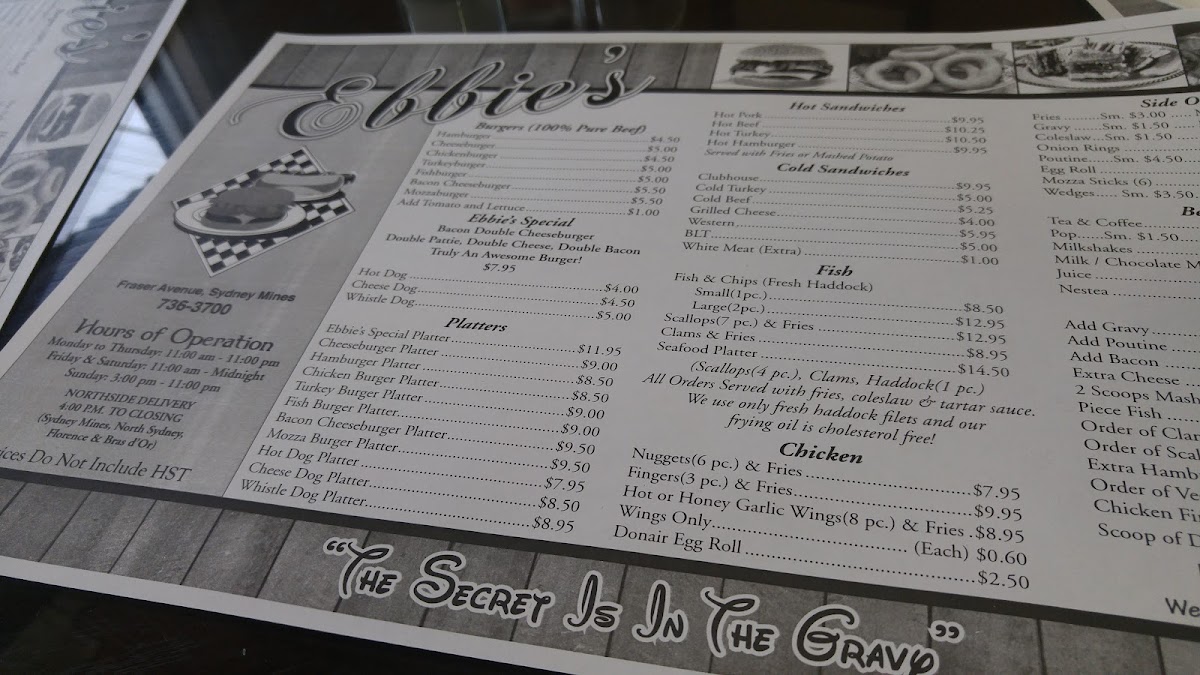 Ebbie's
Fraser Avenue, Sydney Mines
736-3700
Hours of Operation
Monday to Thursday: 11:00 am - 11:00 pm
Friday & Saturday: 11:00 am - Midnight
Sunday: 3:00 pm - 11:00 pm
NORTHSIDE DELIVERY
4:00 P.M. TO CLOSING
(Sydney Mines, North Sydney,
Florence & Bras d'Or)
ices Do Not Include HST
Burgers (100% Pure Beef)
Hamburger $4.50
Cheeseburger $5.00
Chickenburger $4.50
Turkeyburger $5.00
Fishburger $5.00
Bacon Cheeseburger $5.50
Mozzaburger $5.50
Add Tomato and Lettuce $1.00
Ebbie's Special
Bacon Double Cheeseburger
Double Pattie, Double Cheese, Double Bacon
Truly An Awesome Burger!
$7.95
Hot Dog $4.00
Cheese Dog $4.50
Whistle Dog $5.00
Platters
Ebbie's Special Platter $11.95
Cheeseburger Platter $9.00
Hamburger Platter $8.50
Chicken Burger Platter $8.50
Turkey Burger Platter $9.00
Fish Burger Platter $9.00
Bacon Cheeseburger Platter $9.50
Mozza Burger Platter $9.50
Hot Dog Platter $7.95
Cheese Dog Platter $8.50
Whistle Dog Platter $8.95
Hot Sandwiches
Hot Pork $9.95
Hot Beef $10.25
Hot Turkey $10.50
Hot Hamburger $9.95
Served with Fries or Mashed Potato
Cold Sandwiches
Clubhouse $9.95
Cold Turkey $5.00
Cold Beef $5.25
Grilled Cheese $4.00
Western $5.95
BLT $5.00
White Meat (Extra) $1.00
Fish
Fish & Chips (Fresh Haddock)
Small(1pc.) $8.50
Large(2pc.) $12.95
Scallops(7 pc.) & Fries $12.95
Clams & Fries $8.95
Seafood Platter $14.50
(Scallops(4 pc.), Clams, Haddock(1 pc.)
All Orders Served with fries, coleslaw & tartar sauce.
We use only fresh haddock filets and our
frying oil is cholesterol free!
Chicken
Nuggets(6 pc.) & Fries $7.95
Fingers(3 pc.) & Fries $9.95
Hot or Honey Garlic Wings(8 pc.) & Fries $8.95
Wings Only (Each) $0.60
Donair Egg Roll $2.50
Side O
Fries Sm. $3.00
Gravy Sm. $1.50
Coleslaw Sm. $1.50
Onion Rings
Poutine Sm. $4.50
Egg Roll
Mozza Sticks (6)
Wedges Sm. $3.50
B
Tea & Coffee
Pop Sm. $1.50
Milkshakes
Milk / Chocolate M
Juice
Nestea
Add Gravy
Add Poutine
Add Bacon
Extra Cheese
2 Scoops Mash
Piece Fish
Order of Clar
Order of Scal
Extra Hamb
Order of Ve
Chicken Fi
Scoop of D
We
"The Secret Is In The Gravy"